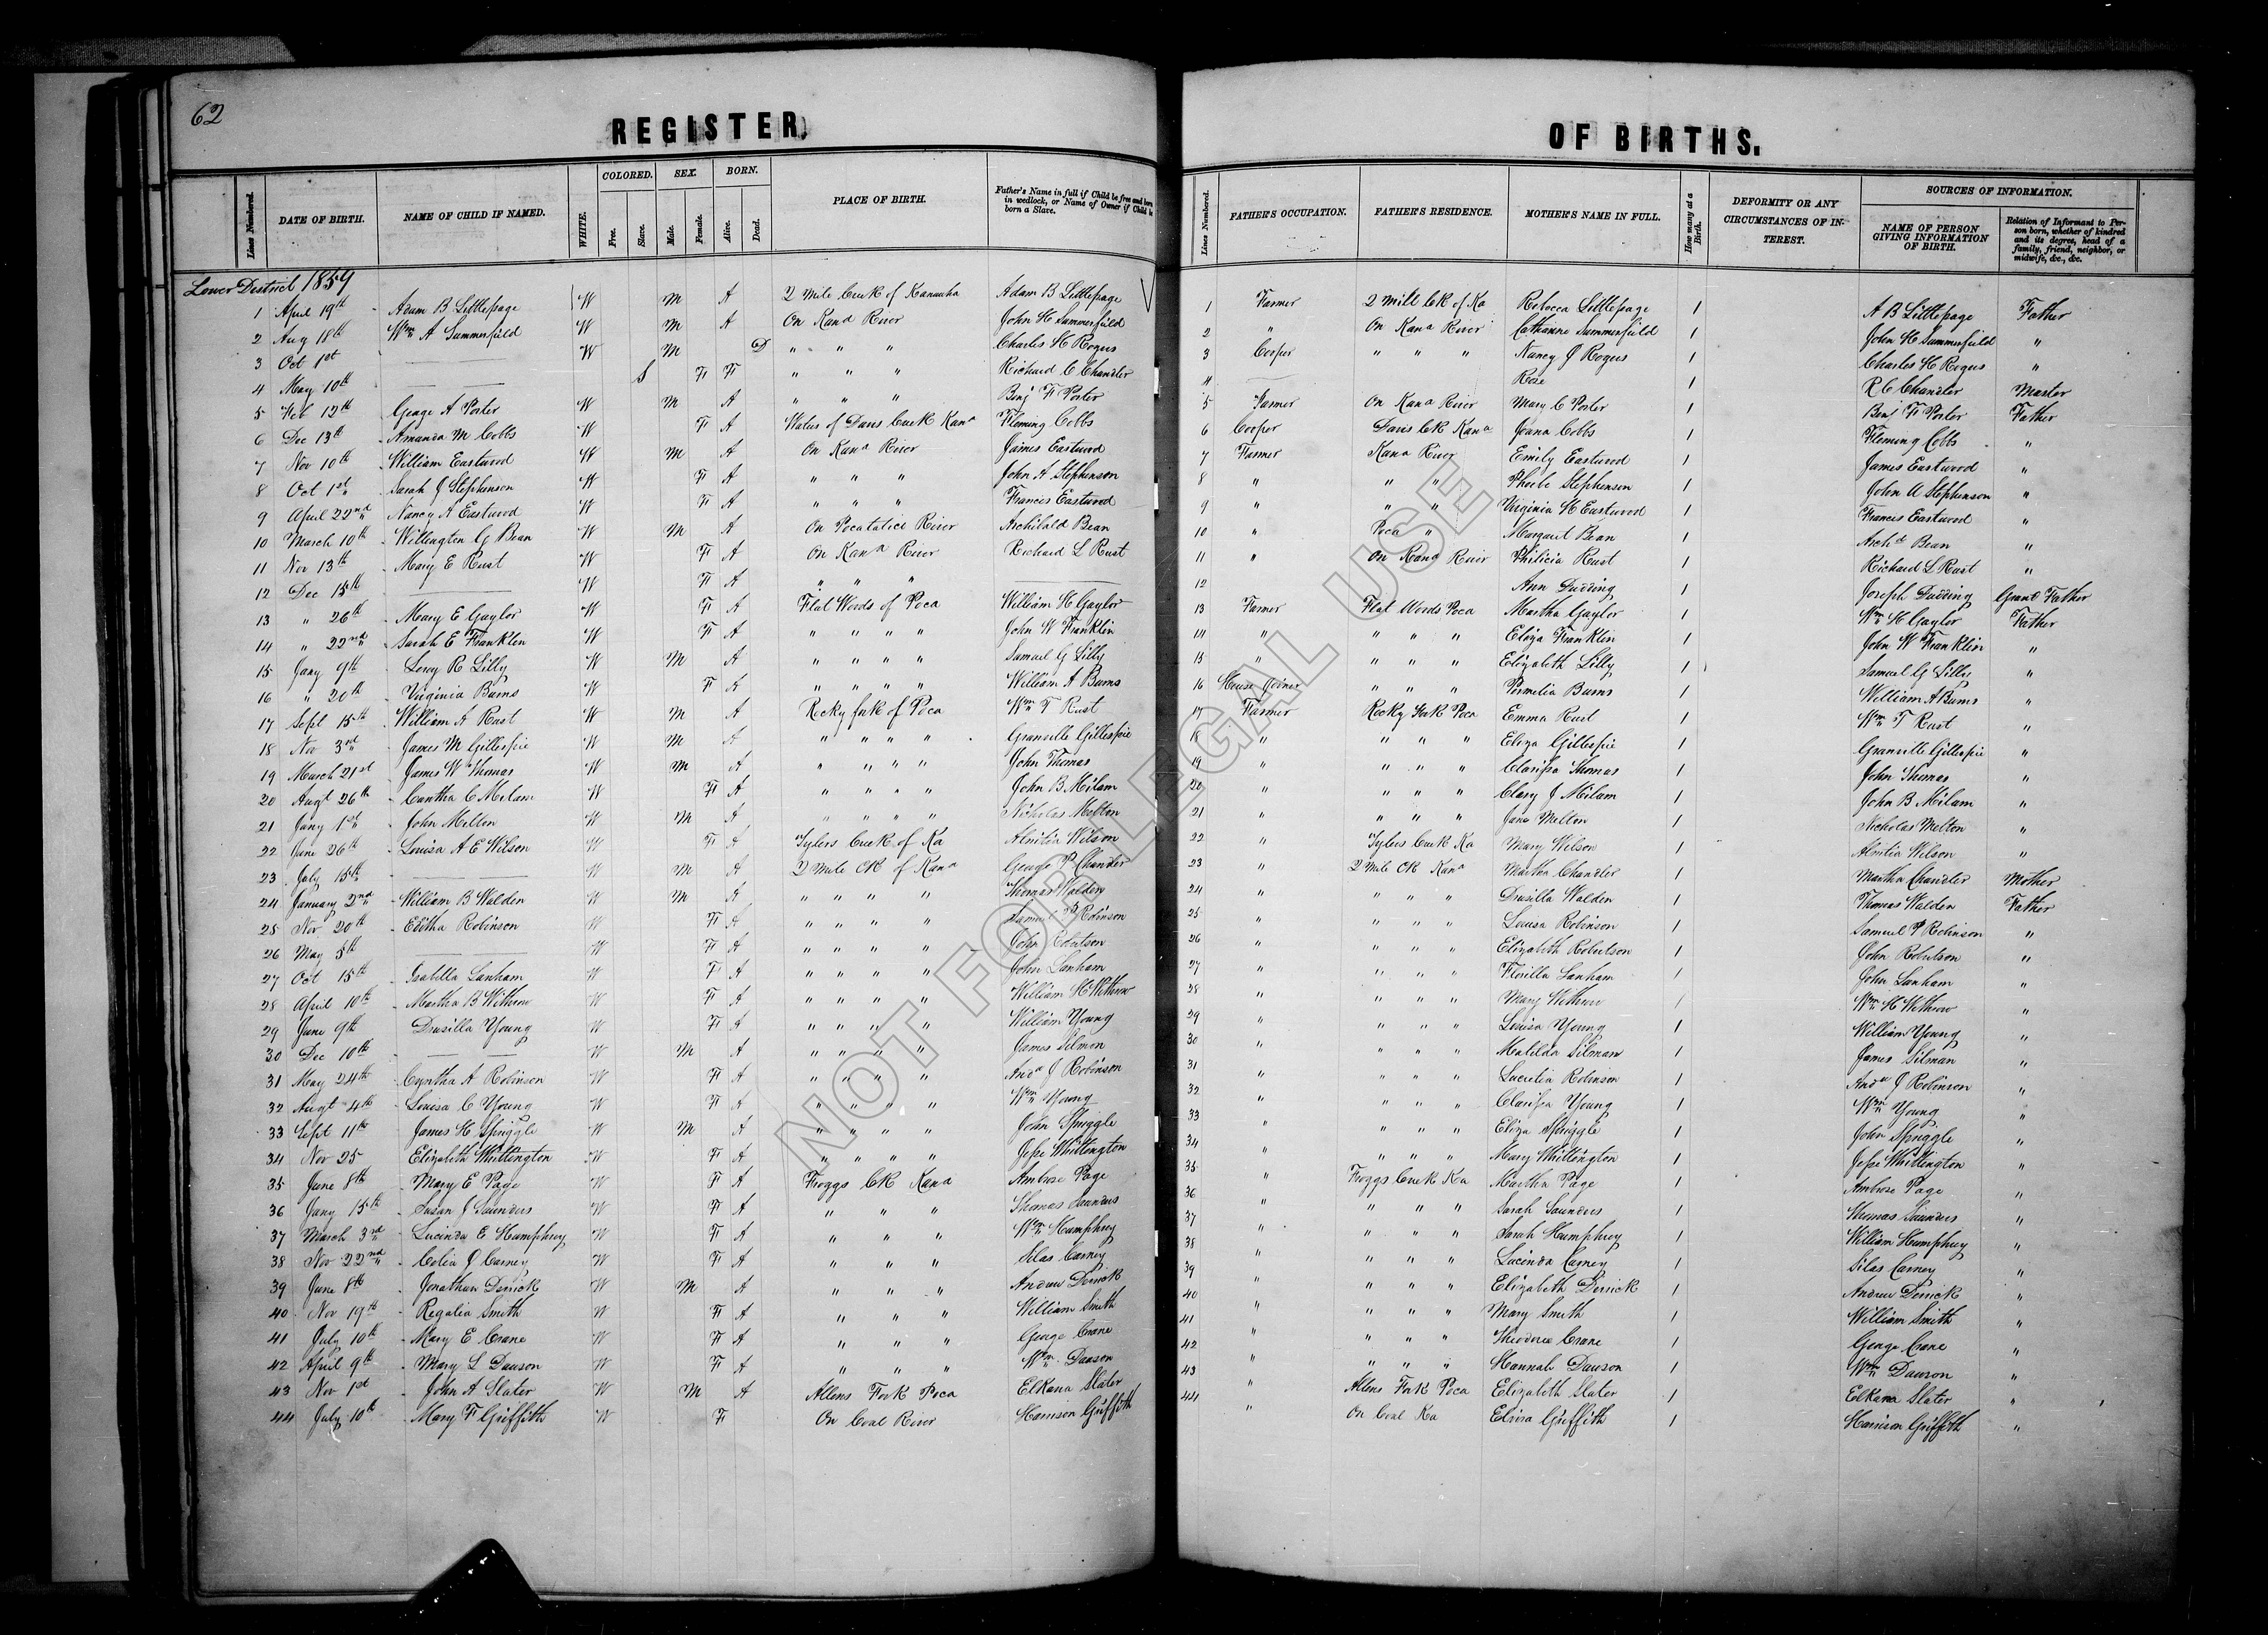 62
REGISTER OF BIRTHS.
Lines Numbered. DATE OF BIRTH. NAME OF CHILD IF NAMED. WHITE. COLORED. Free. Slave. SEX. Male. Female. BORN. Alive. Dead. PLACE OF BIRTH. Father's Name in full if Child be free and born in wedlock, or Name of Owner if Child be born a Slave. Lines Numbered. FATHER'S OCCUPATION. FATHER'S RESIDENCE. MOTHER'S NAME IN FULL. How many at a Birth. DEFORMITY OR ANY CIRCUMSTANCES OF INTEREST. SOURCES OF INFORMATION. NAME OF PERSON GIVING INFORMATION OF BIRTH. Relation of Informant to Person born, whether of kindred and its degree, head of a family, friend, neighbor, or midwife, &c., &c.
Lower District 1859
1 April 19th Adam B Littlepage W M A 2 Mile Creek of Kanawha Adam B Littlepage 1 Farmer 2 Mill Ck of Ka Rebecca Littlepage 1 A B Littlepage Father
2 Aug 18th Wm A Summerfield W M A On Kana River John H Summerfield 2 " On Kana River Catharine Summerfield 1 John H Summerfield "
3 Oct 1st W M D " " " Charles H Rogers 3 Cooper " " " Nancy J Rogers 1 Charles H Rogers "
4 May 10th S F F " " " Richard C Chandler 4 Rose 1 R C Chandler Master
5 Feb 12th George A Porter W M A " " " Benj F Porter 5 Farmer On Kana River Mary C Porter 1 Benj F Porter Father
6 Dec 13th Amanda M Cobbs W F A Watus of Davis Creek Kana Fleming Cobbs 6 Cooper Davis Ck Kana Joana Cobbs 1 Fleming Cobbs "
7 Nov 10th William Eastwood W M A On Kana River James Eastwood 7 Farmer Kana River Emily Eastwood 1 James Eastwood "
8 Oct 1st Sarah J Stephenson W F A " " " John A Stephenson 8 " " " Phoebe Stephenson 1 John A Stephenson "
9 April 22nd Nancy A Eastwood W F A " " " Francis Eastwood 9 " " " Virginia H Eastwood 1 Francis Eastwood "
10 March 10th Willington G Bean W M A On Pocatalico River Archibald Bean 10 " Poca " Margaret Bean 1 Archd Bean "
11 Nov 13th Mary E Rust W F A On Kana River Richard L Rust 11 " On Kana River Philicia Rust 1 Richard L Rust "
12 Dec 15th W F A " " " 12 Ann Dudding 1 Joseph Dudding Grand Father
13 " 26th Mary E Gaylor W F A Flat Woods of Poca William H Gaylor 13 Farmer Flat Woods Poca Martha Gaylor 1 Wm H Gaylor Father
14 " 22nd Sarah E Franklin W F A " " " " John W Franklin 14 " " " " Eliza Franklin 1 John W Franklin "
15 Jany 9th Levy R Lilly W M A " " " " Samuel G Lilly 15 " " " " Elizabeth Lilly 1 Samuel G Lilly "
16 " 20th Virginia Burns W F A " " " " William A Burns 16 House Joiner " " " Permelia Burns 1 William A Burns "
17 Sept 15th William A Rust W M A Rocky fork of Poca Wm T Rust 17 Farmer Rocky Fork Poca Emma Rust 1 Wm T Rust "
18 Nov 3rd James M Gillespie W M A " " " " Granville Gillespie 18 " " " " Eliza Gillespie 1 Granville Gillespie "
19 March 21st James W Thomas W M A " " " " John Thomas 19 " " " " Clarissa Thomas 1 John Thomas "
20 Augt 26th Cantha C Milam W F A " " " " John B Milam 20 " " " " Clary J Milam 1 John B Milam "
21 Jany 1st John Melton W M A " " " " Nicholas Melton 21 " " " " Jane Melton 1 Nicholas Melton "
22 June 26th Louisa A E Wilson W F A Tylers Creek of Ka Wilson 22 " Tylers Creek Ka Mary Wilson 1 Wilson "
23 July 15th W M A 2 Mile Ck of Kana George P Chandler 23 " 2 Mile Ck Kana Martha Chandler 1 Martha Chandler Mother
24 January 2nd William B Walden W M A " " " " Thomas Walden 24 " " " " Drusilla Walden 1 Thomas Walden Father
25 Nov 20th Editha Robinson W F A " " " " Samuel P Robinson 25 " " " " Louisa Robinson 1 Samuel P Robinson "
26 May 5th W F A " " " " John Robertson 26 " " " " Elizabeth Robertson 1 John Robertson "
27 Oct 15th Isabella Lanham W F A " " " " John Lanham 27 " " " " Florilla Lanham 1 John Lanham "
28 April 10th Martha B Withrow W F A " " " " William H Withrow 28 " " " " Mary Withrow 1 Wm H Withrow "
29 June 9th Drusilla Young W F A " " " " William Young 29 " " " " Louisa Young 1 William Young "
30 Dec 10th W M A " " " " James Silmon 30 " " " " Matilda Silman 1 James Silman "
31 May 24th Cyntha A Robinson W F A " " " " Andw J Robinson 31 " " " " Lucretia Robinson 1 Andw J Robinson "
32 Augt 4th Louisa C Young W F A " " " " Wm Young 32 " " " " Clarissa Young 1 Wm Young "
33 Sept 11th James H Spriggle W M A " " " " John Spriggle 33 " " " " Eliza Spriggle 1 John Spriggle "
34 Nov 25 Elizabeth Whittington W F A " " " " Jesse Whittington 34 " " " " Mary Whittington 1 Jesse Whittington "
35 June 8th Mary E Page W F A Froggs Ck Kana Ambrose Page 35 " Froggs Creek Ka Martha Page 1 Ambrose Page "
36 Jany 15th Susan J Saunders W F A " " " Thomas Saunders 36 " " " " Sarah Saunders 1 Thomas Saunders "
37 March 3rd Lucinda E Humphrey W F A " " " Wm Humphrey 37 " " " " Sarah Humphrey 1 William Humphrey "
38 Nov 22nd Celia J Carney W F A " " " Silas Carney 38 " " " " Lucinda Carney 1 Silas Carney "
39 June 8th Jonathan Derrick W M A " " " Andrew Derrick 39 " " " " Elizabeth Derrick 1 Andrew Derrick "
40 Nov 19th Regalia Smith W F A " " " William Smith 40 " " " " Mary Smith 1 William Smith "
41 July 10th Mary E Crane W F A " " " George Crane 41 " " " " Crane 1 George Crane "
42 April 9th Mary L Dawson W F A " " " Wm Dawson 42 " " " " Hannah Dawson 1 Wm Dawson "
43 Nov 1st John A Slater W M A Allens Fork Poca Elkana Slater 43 " Allens Fork Poca Elizabeth Slater 1 Elkana Slater "
44 July 10th Mary F Griffith W F On Coal River Harrison Griffith 44 " On Coal Ka Elvira Griffith 1 Harrison Griffith "
NOT FOR LEGAL USE